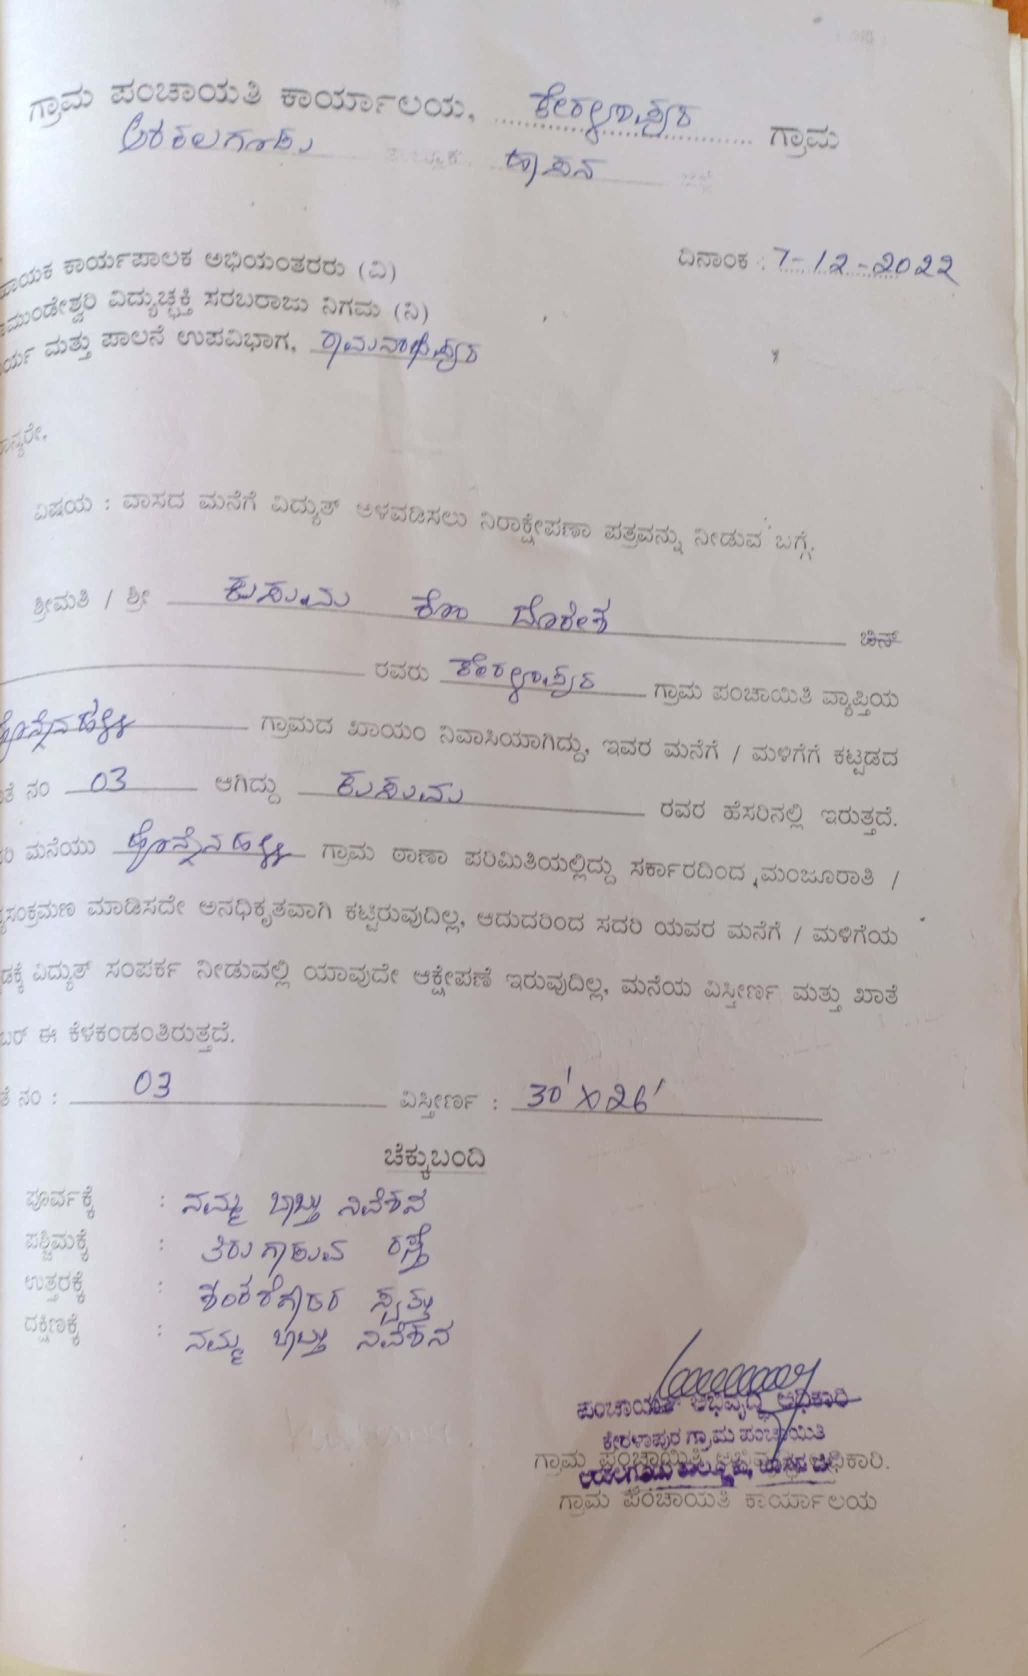 ಗ್ರಾಮ ಪಂಚಾಯತಿ ಕಾರ್ಯಾಲಯ, ಕೇರಳಾಪುರ ಗ್ರಾಮ
ಅರಕಲಗೂಡು ತಾಲ್ಲೂಕು ಹಾಸನ ಜಿಲ್ಲೆ
ದಿನಾಂಕ : 7-12-2022
ಾಯಕ ಕಾರ್ಯಪಾಲಕ ಅಭಿಯಂತರರು (ವಿ)
ಾಮುಂಡೇಶ್ವರಿ ವಿದ್ಯುಚ್ಛಕ್ತಿ ಸರಬರಾಜು ನಿಗಮ (ನಿ)
ರ್ಯ ಮತ್ತು ಪಾಲನೆ ಉಪವಿಭಾಗ, ರಾಮನಾಥಪುರ
ಾನ್ಯರೇ,
ವಿಷಯ : ವಾಸದ ಮನೆಗೆ ವಿದ್ಯುತ್ ಅಳವಡಿಸಲು ನಿರಾಕ್ಷೇಪಣಾ ಪತ್ರವನ್ನು ನೀಡುವ ಬಗ್ಗೆ.
ಶ್ರೀಮತಿ / ಶ್ರೀ ಕುಸುಮ ಕೋಂ ದೊರೇಶ ಬಿನ್
ರವರು ಕೇರಳಾಪುರ ಗ್ರಾಮ ಪಂಚಾಯಿತಿ ವ್ಯಾಪ್ತಿಯ
ಹೊನ್ನೇನಹಳ್ಳಿ ಗ್ರಾಮದ ಖಾಯಂ ನಿವಾಸಿಯಾಗಿದ್ದು, ಇವರ ಮನೆಗೆ / ಮಳಿಗೆಗೆ ಕಟ್ಟಡದ
ತೆ ನಂ 03 ಆಗಿದ್ದು ಕುಸುಮ ರವರ ಹೆಸರಿನಲ್ಲಿ ಇರುತ್ತದೆ.
ರಿ ಮನೆಯು ಹೊನ್ನೇನಹಳ್ಳಿ ಗ್ರಾಮ ಠಾಣಾ ಪರಿಮಿತಿಯಲ್ಲಿದ್ದು ಸರ್ಕಾರದಿಂದ ಮಂಜೂರಾತಿ /
ಸಂಕ್ರಮಣ ಮಾಡಿಸದೇ ಅನಧಿಕೃತವಾಗಿ ಕಟ್ಟಿರುವುದಿಲ್ಲ, ಆದುದರಿಂದ ಸದರಿ ಯವರ ಮನೆಗೆ / ಮಳಿಗೆಯ
ಡಕ್ಕೆ ವಿದ್ಯುತ್ ಸಂಪರ್ಕ ನೀಡುವಲ್ಲಿ ಯಾವುದೇ ಆಕ್ಷೇಪಣೆ ಇರುವುದಿಲ್ಲ, ಮನೆಯ ವಿಸ್ತೀರ್ಣ ಮತ್ತು ಖಾತೆ
ಬರ್ ಈ ಕೆಳಕಂಡಂತಿರುತ್ತದೆ.
ತೆ ನಂ : 03 ವಿಸ್ತೀರ್ಣ : 30'X26'
ಚೆಕ್ಕುಬಂದಿ
ಪೂರ್ವಕ್ಕೆ : ನಮ್ಮ ಬಾಬ್ತು ನಿವೇಶನ
ಪಶ್ಚಿಮಕ್ಕೆ : ತಿರುಗಾಡುವ ರಸ್ತೆ
ಉತ್ತರಕ್ಕೆ : ಶಂಕರೇಗೌಡರ ಸ್ವತ್ತು
ದಕ್ಷಿಣಕ್ಕೆ : ನಮ್ಮ ಬಾಬ್ತು ನಿವೇಶನ
ಪಂಚಾಯತ್ ಅಭಿವೃದ್ಧಿ ಅಧಿಕಾರಿ
ಕೇರಳಾಪುರ ಗ್ರಾಮ ಪಂಚಾಯಿತಿ
ಗ್ರಾಮ ಪಂಚಾಯಿತಿ ಅಭಿವೃದ್ಧಿ ಅಧಿಕಾರಿ.
ಅರಕಲಗೂಡು ತಾಲ್ಲೂಕು, ಹಾಸನ ಜಿಲ್ಲೆ
ಗ್ರಾಮ ಪಂಚಾಯತಿ ಕಾರ್ಯಾಲಯ